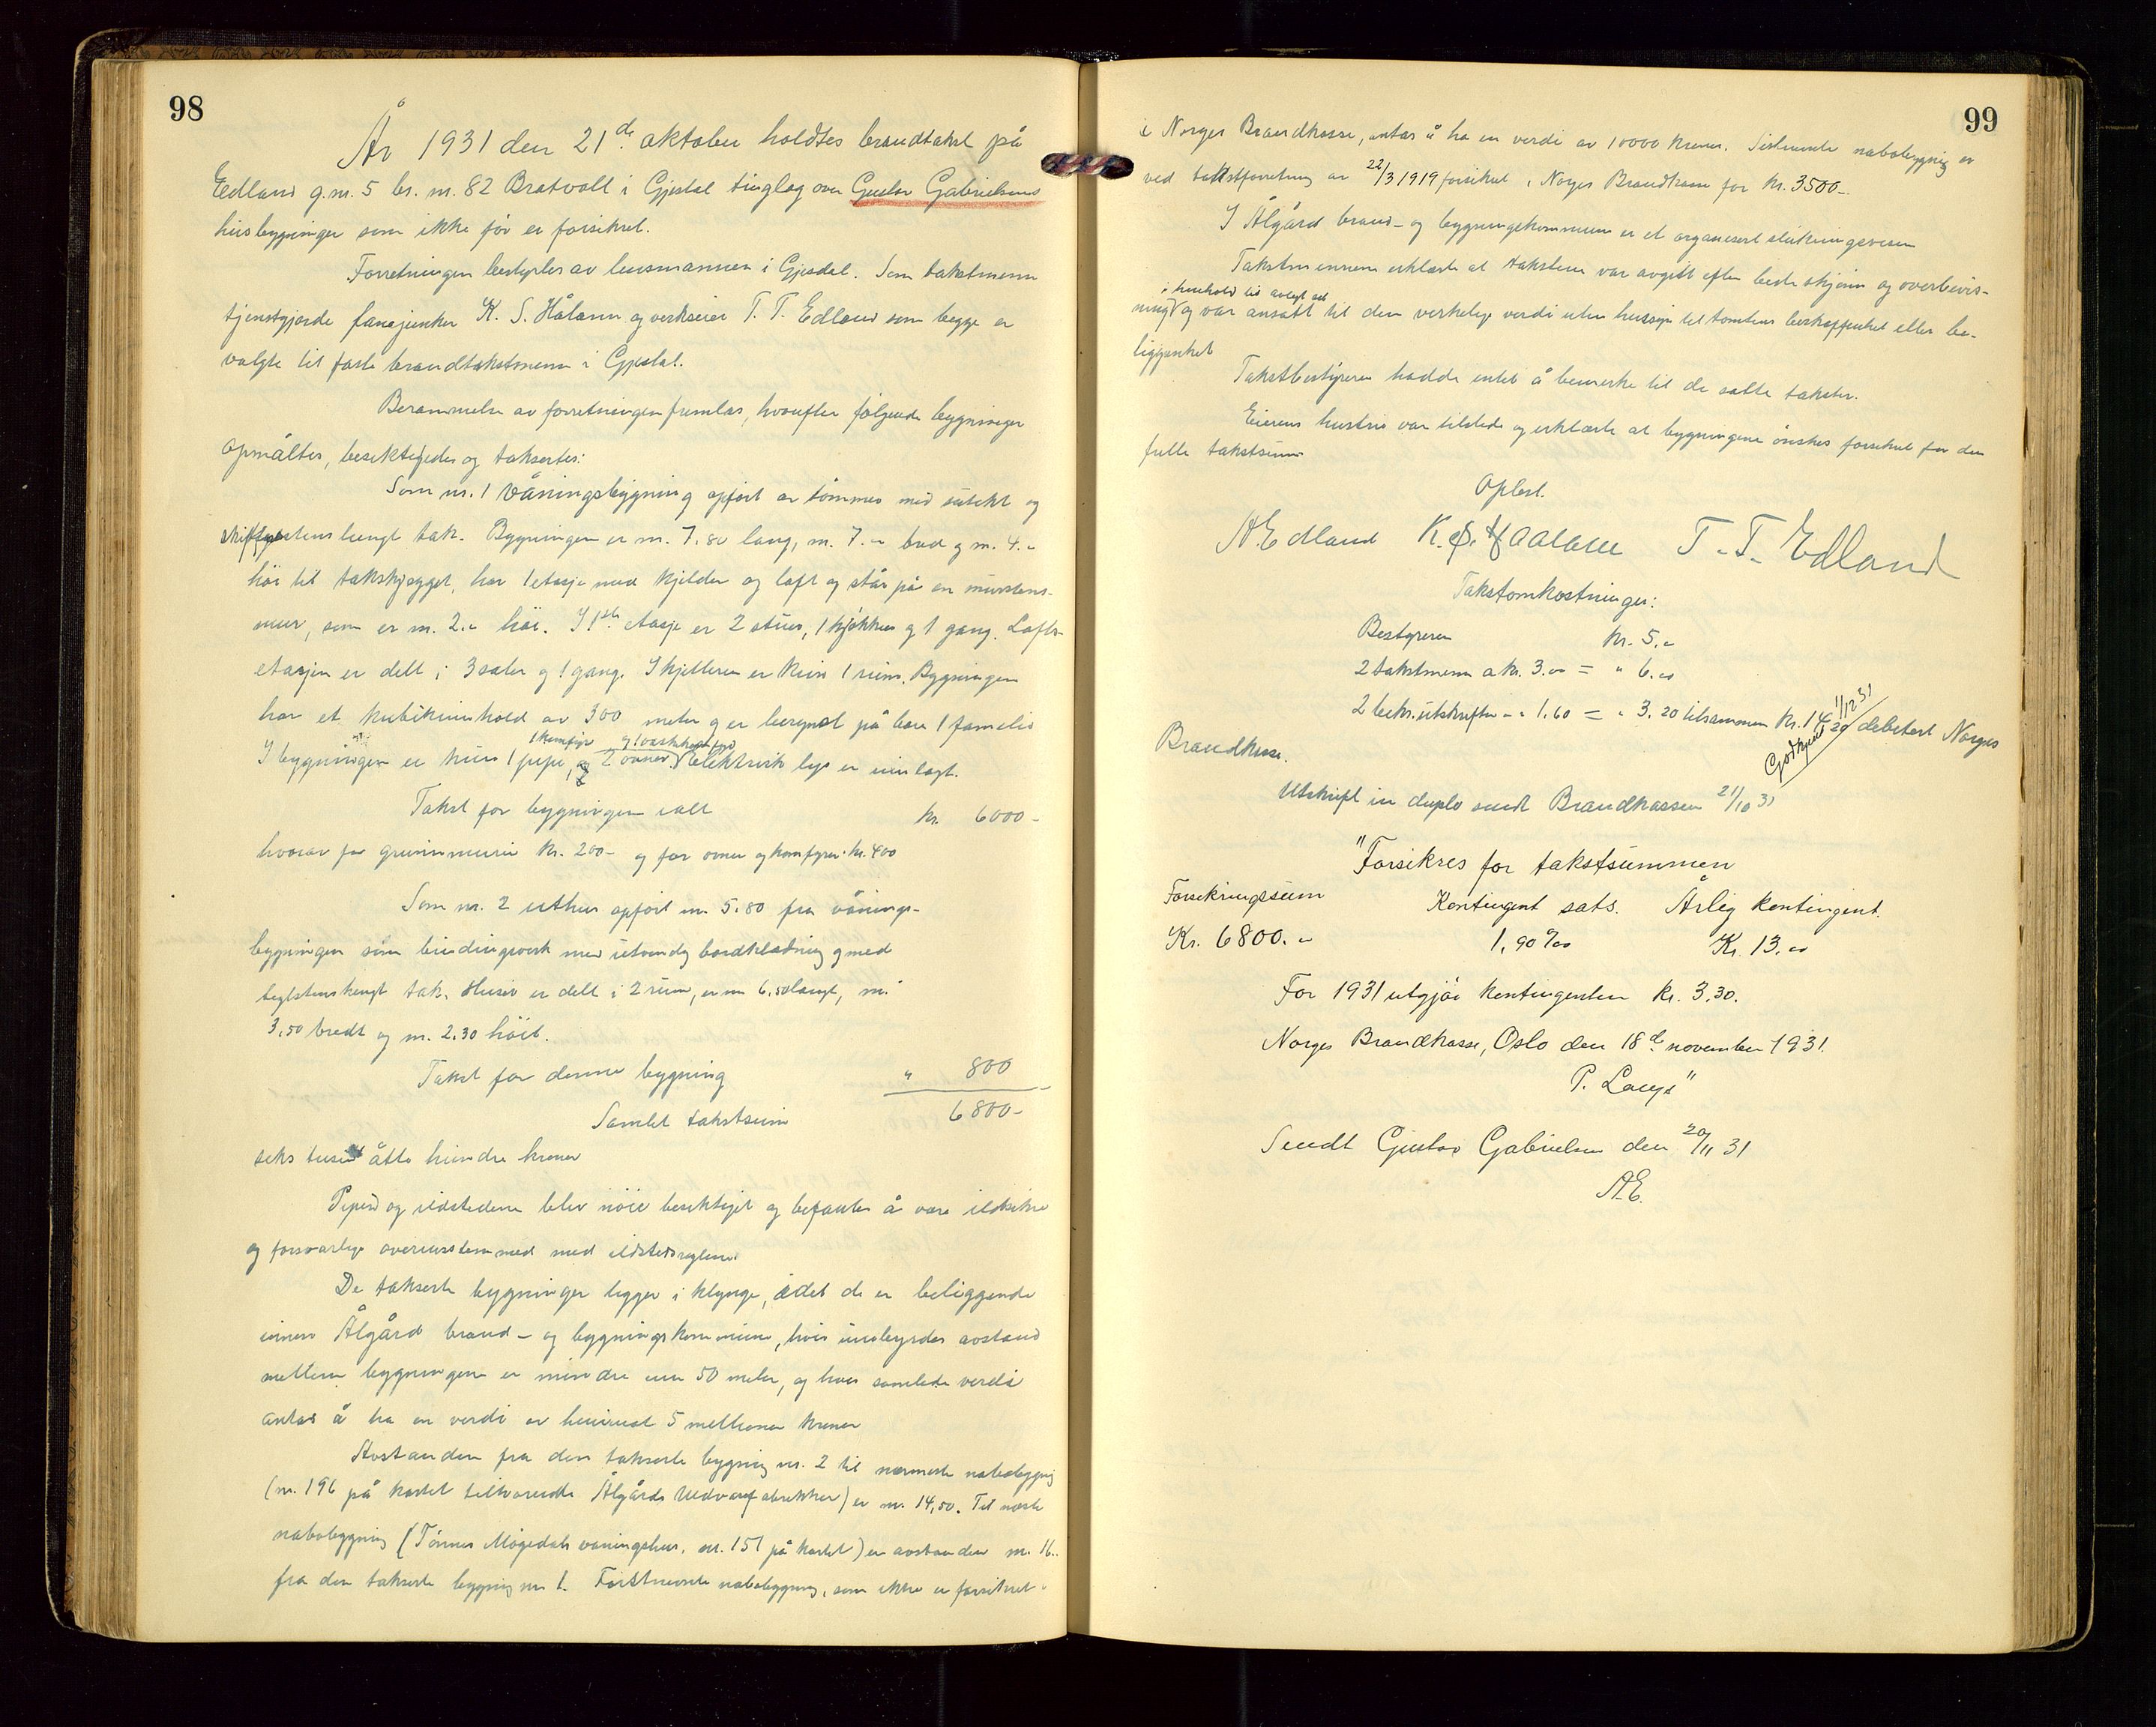 98
År 1931 den 21de oktober holdtes brandtakst på
Edland g.nr. 5 br. nr. 82 Bratvoll i Gjestal tinglag over Gustav Gabrielsens
husbygninger som ikke før er forsikret.
Forretningen bestyrtes av lensmannen i Gjesdal. Som takstmenn
tjenstgjorde fanejunker K. S. Håland og verkseier T. T. Edland som begge er
valgte til faste brandtakstmenn i Gjestal.
Berammelse av forretningen fremlas, hvorefter følgende bygninger
opmåltes, besiktigedes og taksertes:
Som nr. 1 Våningsbygning opført av tømmer med utekt og
skifferstenshengt tak. Bygningen er m. 7,80 lang, m. 7.- bred og m. 4.-
høi til takskjegget, har 1 etasje med kjelder og loft og står på en murstens-
mur, som er m. 2.- høi. I 1ste etasje er 2 stuer, 1 kjøkken og 1 gang. Lofts-
etasjen er delt i 3 saler og 1 gang. I kjelleren er kun 1 rum. Bygningen
har et kubikinnhold av 300 meter og er beregnet på bare 1 familie
1 komfyr og 1 vaskekomfyr
I bygningen er kun 1 pipe, og 2 ovner. Elektrisk lys er innlagt.
Takst for bygningen ialt kr. 6000-
hvorav for grunnmuren kr. 200- og for ovner og komfyrer kr. 400
Som nr. 2 uthus opført m. 5.80 fra vånings-
bygningen som bindingsverk med utvendig bordkledning og med
teglstenshengt tak. Huset er delt i 2 rum, er m. 6,50 langt, m.
3,50 bredt og m. 2.30 høit.
Takst for denne bygning " 800
Samlet takstsum 6800-
seks tusen åtte hundre kroner
Pipen og ildstedene blev nøie besiktiget og befantes å være ildsikre
og forsvarlige overensstemmed med ildstedsreglene.
De takserte bygninger ligger i klynge, idet de er beliggende
innen Ålgård brand- og bygningskommune, hvis innbyrdes avstand
mellem bygningene er mindre enn 50 meter, og hvis samlede verdi
antas å ha en verdi av henimot 5 millioner kroner
Avstanden fra den takserte bygning nr. 2 til nærmeste nabobygning
(nr. 196 på kartet tilhørende Ålgårds Uldvarefabrikker) er m. 14,50. Til neste
nabobygning (Tønnes Mogedals våningshus, nr. 151 på kartet) er avstanden m. 16..
fra den takserte bygning nr. 1. Førstnevnte nabobygning, som ikke er forsikret
99
i Norges Brandkasse, antas å ha en verdi av 10000 kroner. Sistnevnte nabobygning er
ved takstforretning av 22/3 1919 forsikret i Norges Brandkasse for kr. 3500-
I Ålgård brand- og bygningskommune er et organisert slukningsvesen
Takstmennene erklærte at taksten var avgitt efter beste skjønn og overbevis-
i henhold til avlagt ed
ning og var ansatt til den verkelige verdi uten hensyn til tomtens beskaffenhet eller be-
liggenhet
Takstbestyreren hadde intet å bemerke til de satte takster.
Eierens hustru var tilstede og erklærte at bygningene ønskes forsikret for den
fulle takstsum
Oplest.
A. Edland K. S. Haaland T. T. Edland
Takstomkostninger:
Bestyreren kr. 5.-
2 takstmenn a kr. 3.00 = " 6.00
2 bekr. utskrifter - " 1.60 = " 3.20 tilsammen kr. 14.20 debitert Norges
Godkjent 1/12 31
Brandkasse.
Utskrift in duplo sendt Brandkassen 21/10 31
"Forsikres for takstsummen
Forsikringssum Kontingent sats. Årlig kontingent.
Kr. 6800.- 1,90 ‰ Kr. 13.00
For 1931 utgjør kontingenten kr. 3.30.
Norges Brandkasse, Oslo den 18de november 1931.
P. Lange"
Sendt Gustav Gabrielsen den 20/11 31
A.E.